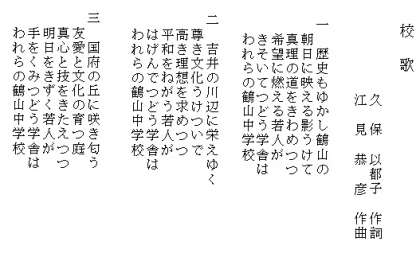 校　歌
久　保　以都子　作詞
江　見　恭　彦　作曲
一　歴史もゆかし鶴山の
朝日に映える影うけて
真理の道をきわめつつ
希望に燃える若人が
きそいてつどう学舎は
われらの鶴山中学校
二　吉井の川辺に栄えゆく
尊き文化うけついで
高き理想を求めつつ
平和をねがう若人が
はげんでつどう学舎は
われらの鶴山中学校
三　国府の丘に咲き匂う
友愛と文化の育つ庭
真心と技をきたえつつ
明日をきずく若人が
手をくみつどう学舎は
われらの鶴山中学校